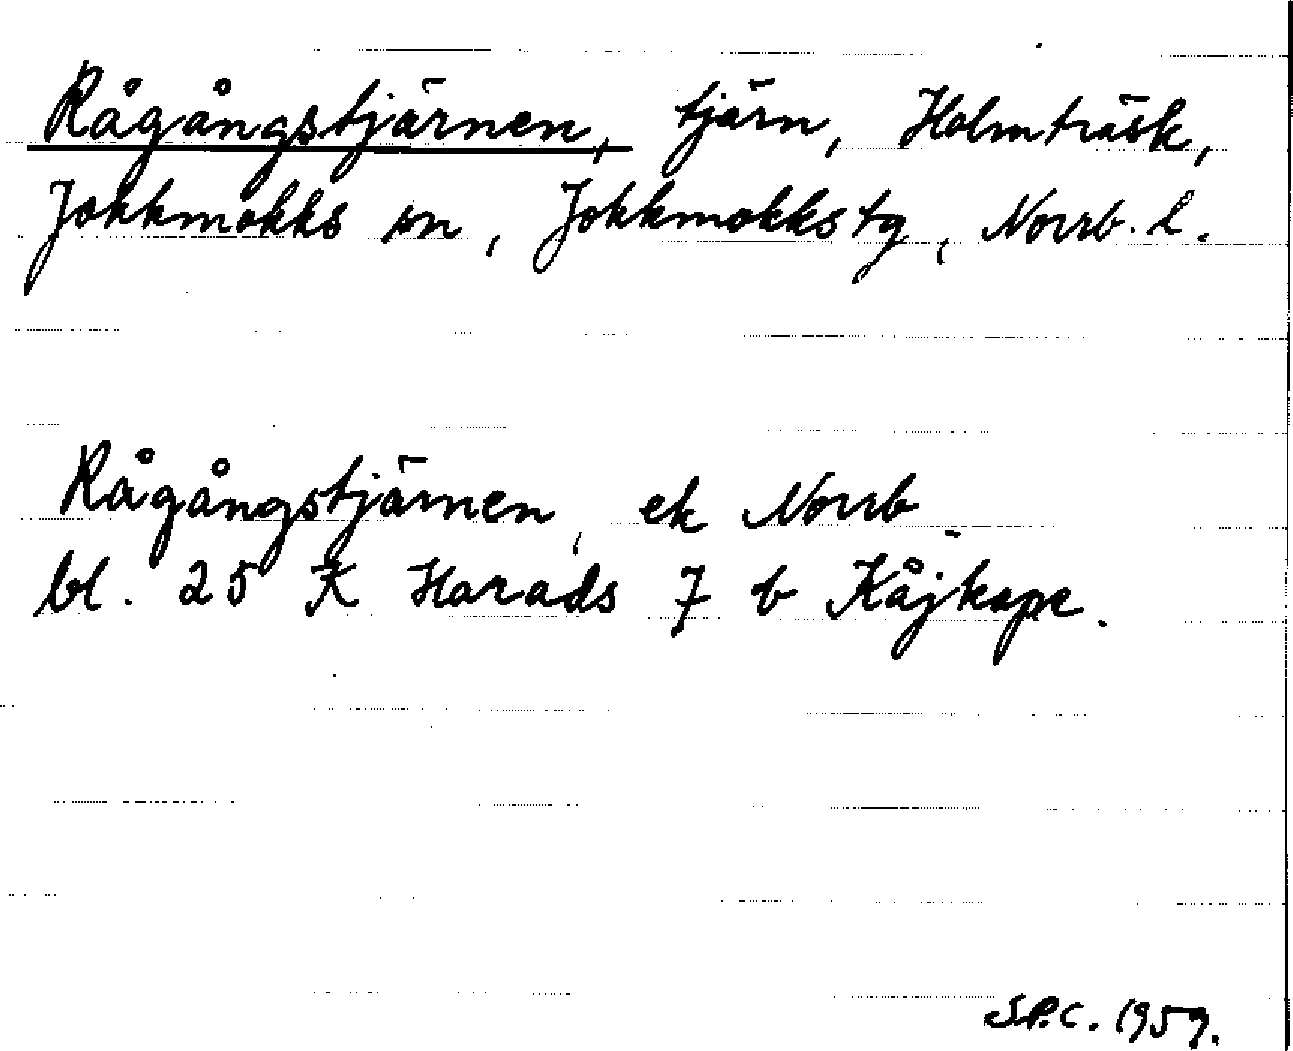 Rågångstjärnen, tjärn, Holmträsk,
Jokkmokks sn, Jokkmokks tg, Norrb. l.
Rågångstjärnen, ek Norrb
bl. 25 K Harads 7 b Kåjkape.
S.P.C. 1959.